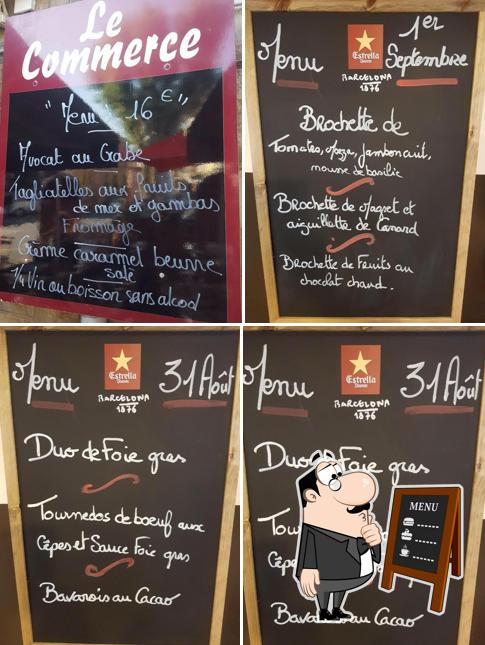 Le
Commerce
"Menu 16 €"
Avocat au Crabe
Tagliatelles aux fruits
de mer et gambas
Fromage
Crème caramel beurre
salé
1/4 Vin ou boisson sans alcool
Menu
Estrella
Damm
BARCELONA
1876
1er
Septembre
Brochette de
Tomates, Mozza, Jambon cuit,
mousse de basilic
Brochette de Magret et
aiguillette de Canard
Brochette de Fruits au
chocolat chaud.
Menu
Estrella
Damm
BARCELONA
1876
31 Août
Duo de Foie gras
Tournedos de boeuf aux
Cèpes et Sauce Foie gras
Bavarois au Cacao
Menu
Estrella
Damm
BARCELONA
1876
31 Août
Duo Foie gras
Tou
Cèpe
Bavarois au Cacao
MENU